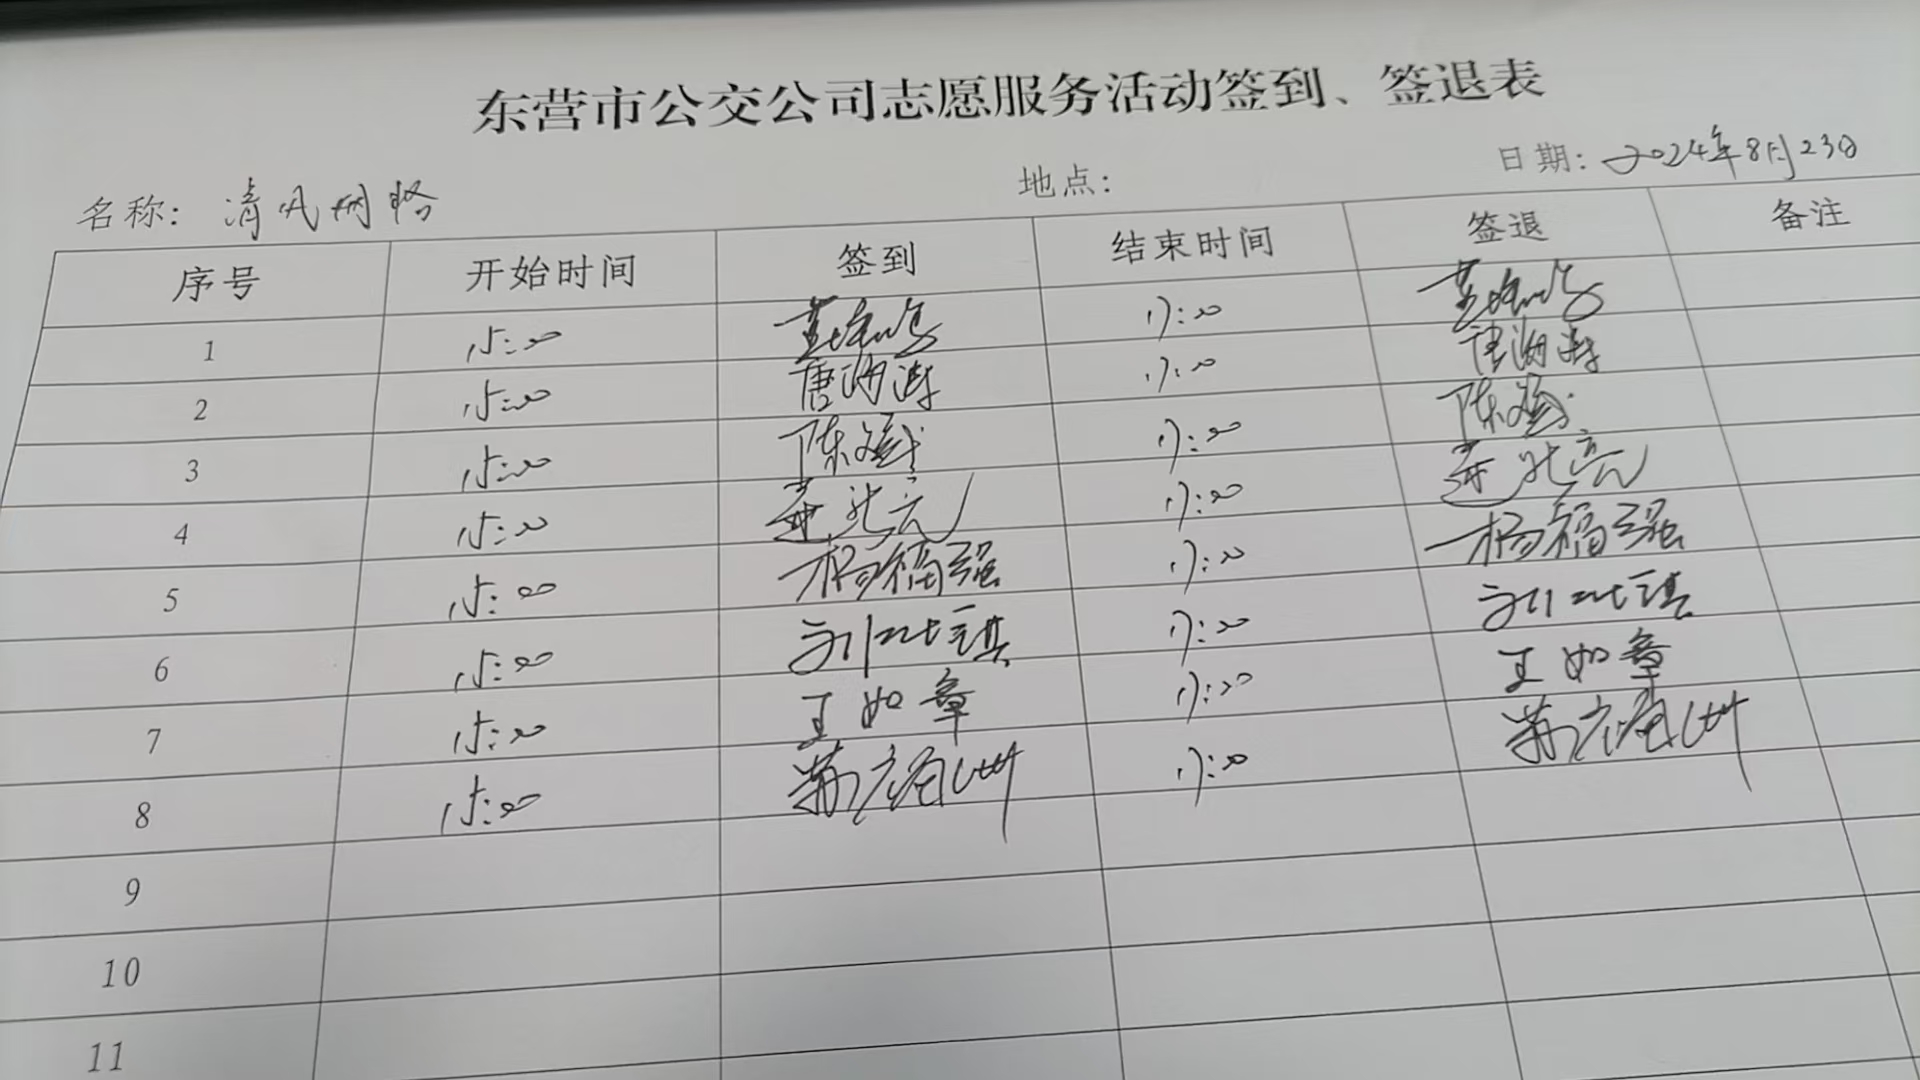 东营市公交公司志愿服务活动签到、签退表
名称: 清风网格 地点: 日期: 2024年8月23日
序号 开始时间 签到 结束时间 签退 备注
1 15:00 17:00
2 15:00 唐海涛 17:00 唐海涛
3 15:00 陈 17:00 陈
4 15:00 17:00
5 15:00 杨福强 17:00 杨福强
6 15:00 17:00
7 15:00 王如章 17:00 王如章
8 15:00 17:00
9
10
11